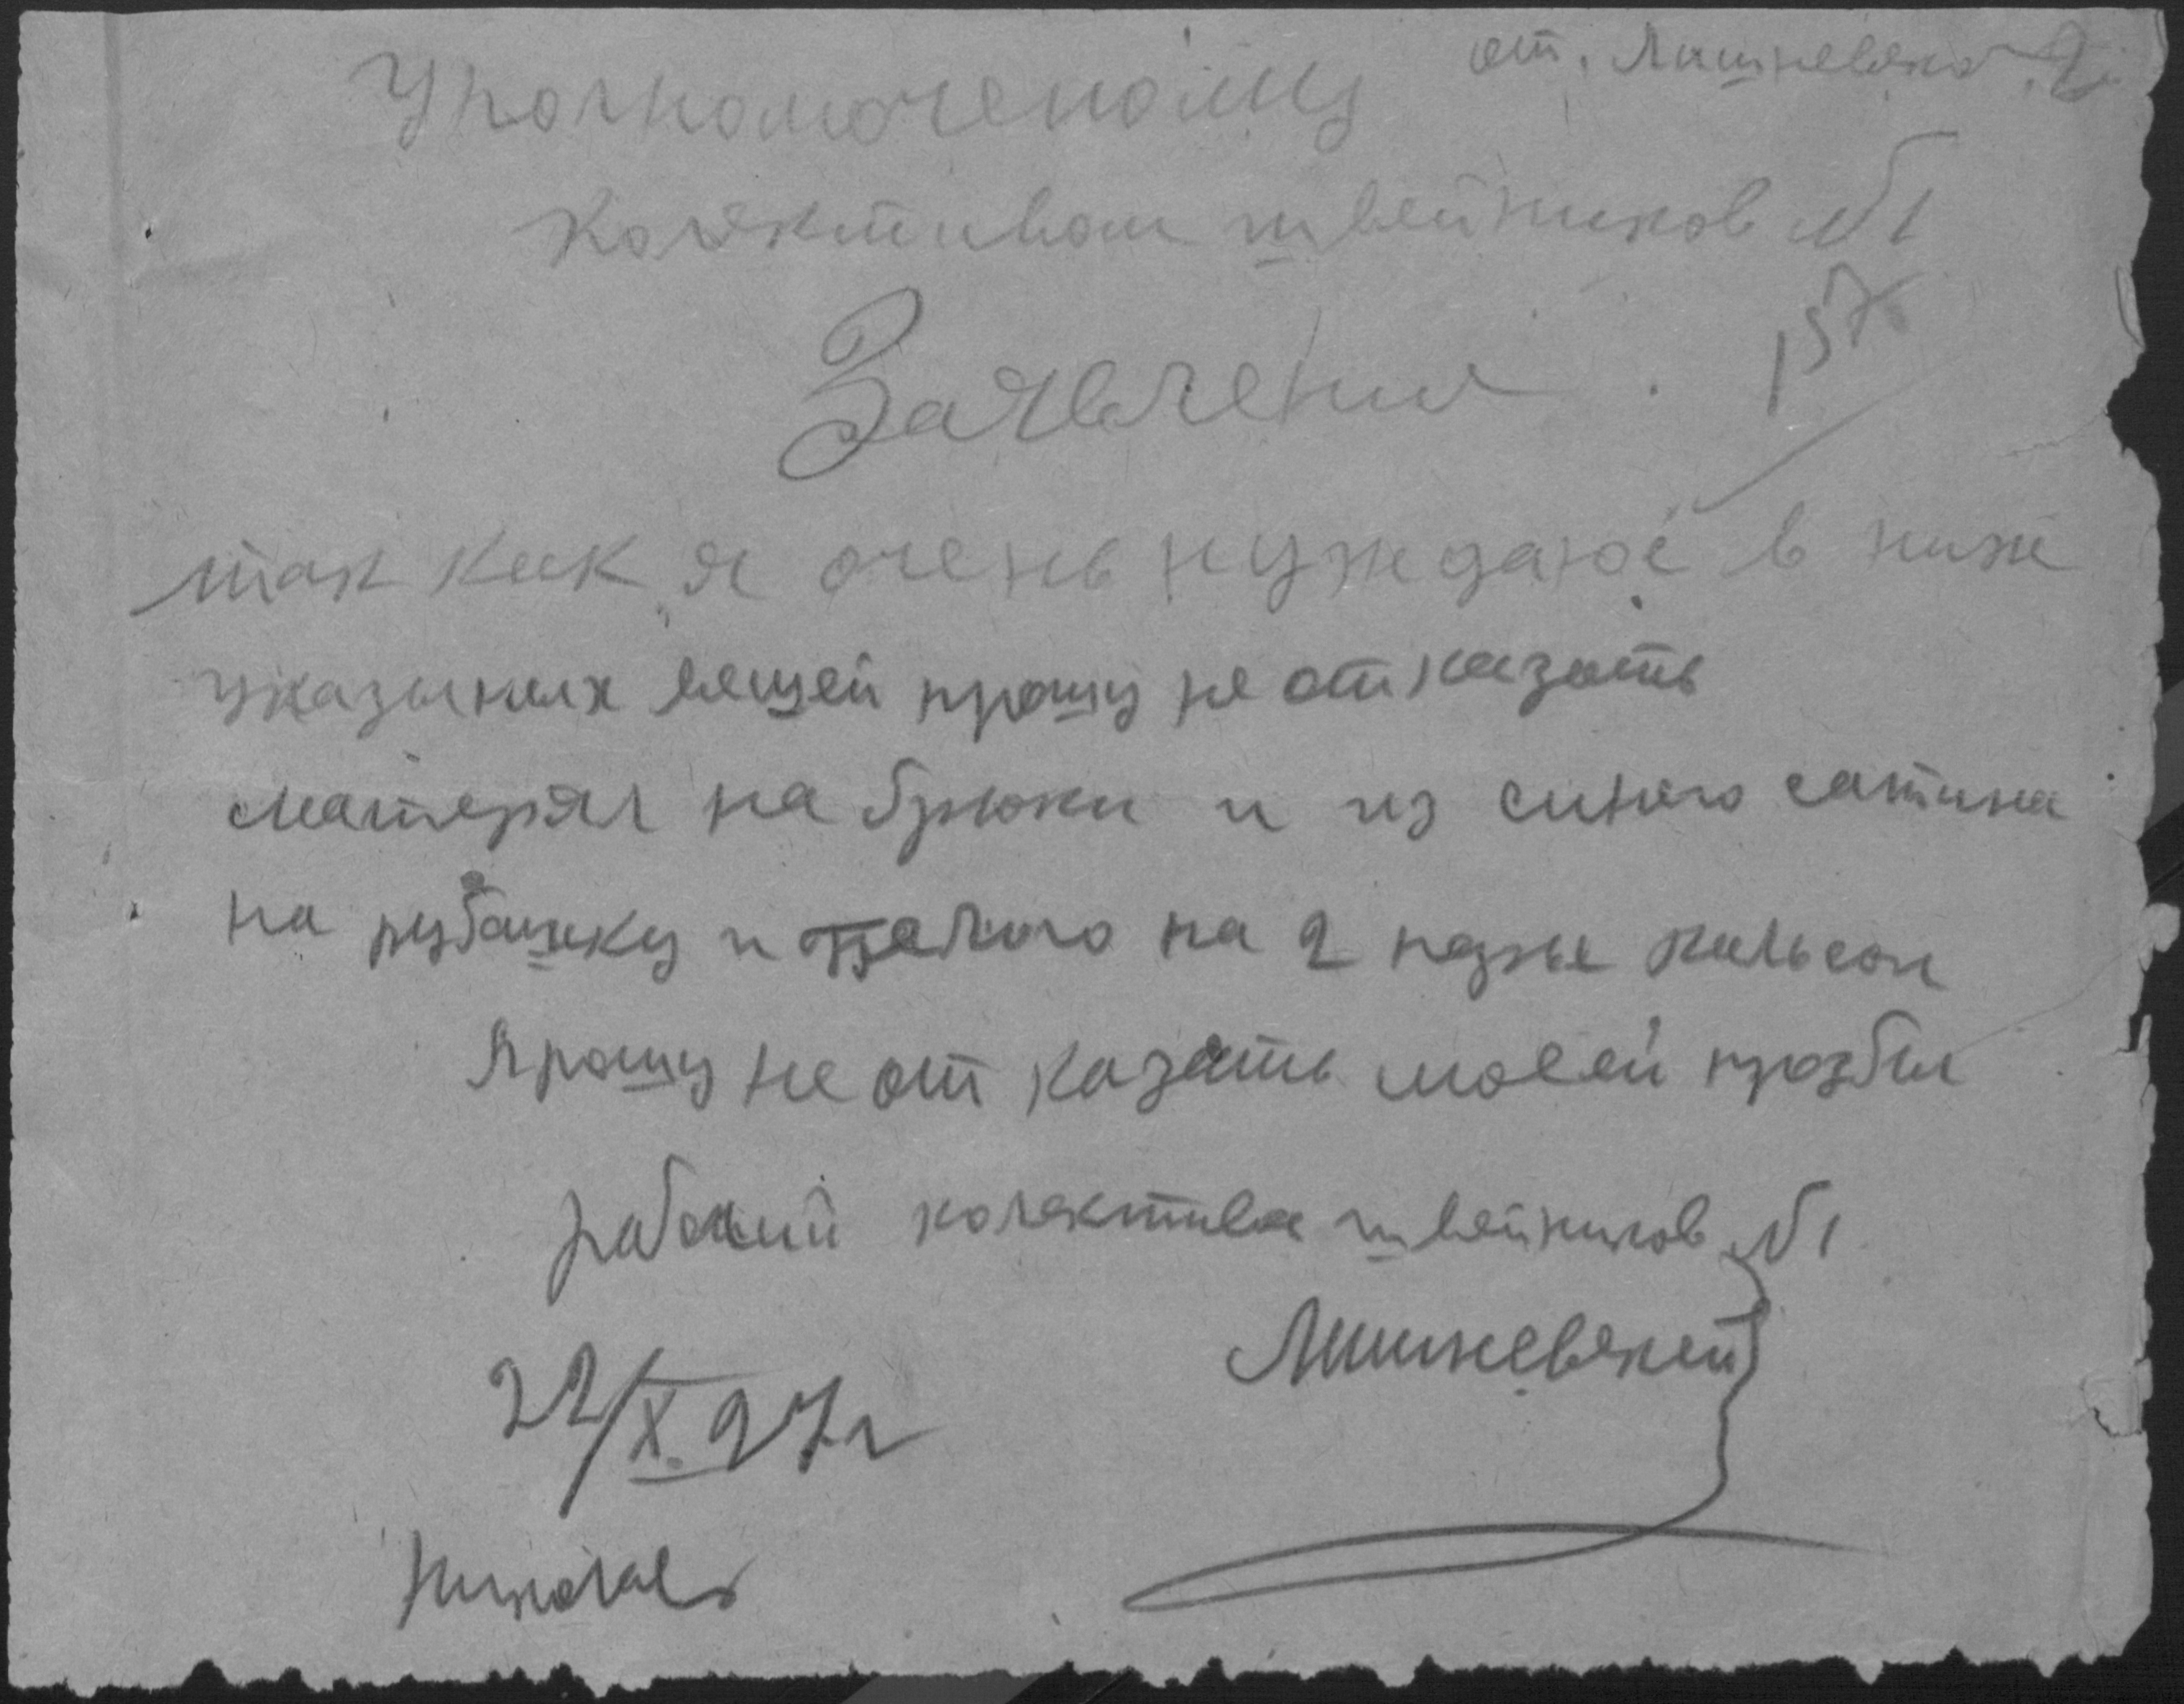 от. Лишневско
Уполномоченому
Колективом швейников №1
Заявления
157
так как я очень нуждаюс в ниже
указыных вещей прошу не отказать
материял на брюки и из синого сатина
на рубашку и белого на 2 пары кальсон
Прошу не от казать моеей прозбы
рабочий колектива швейников №1
Лишневский
22/X.27г
Николаев